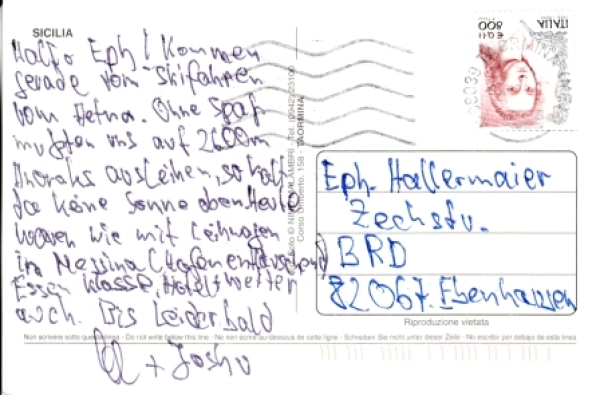 SICILIA
Hallo Eph! Kommen
gerade vom Skifahren
vom Aetna. Ohne Spaß
mußten uns auf 2600m
Anoraks ausleihen, so kalt
da keine Sonne oben. Heute
waren wir mit Leihwagen
in Messina (Hafen enttäuschend)
Essen klasse, Hotel + Wetter
auch. Bis leider bald
+ Joshu
Corso Umberto, 158 - TAORMINA
Tel. (0942) 23100
ITALIA
800
Eph. Hallermaier
Zechstr.
BRD
82067 Ebenhausen
Riproduzione vietata
Non scrivere sotto questa linea - Do not write below this line - No non ecrire au-dessous de cette ligne - Schreiben Sie nicht unter dieser Zeile - No escribir por debajo de esta linea